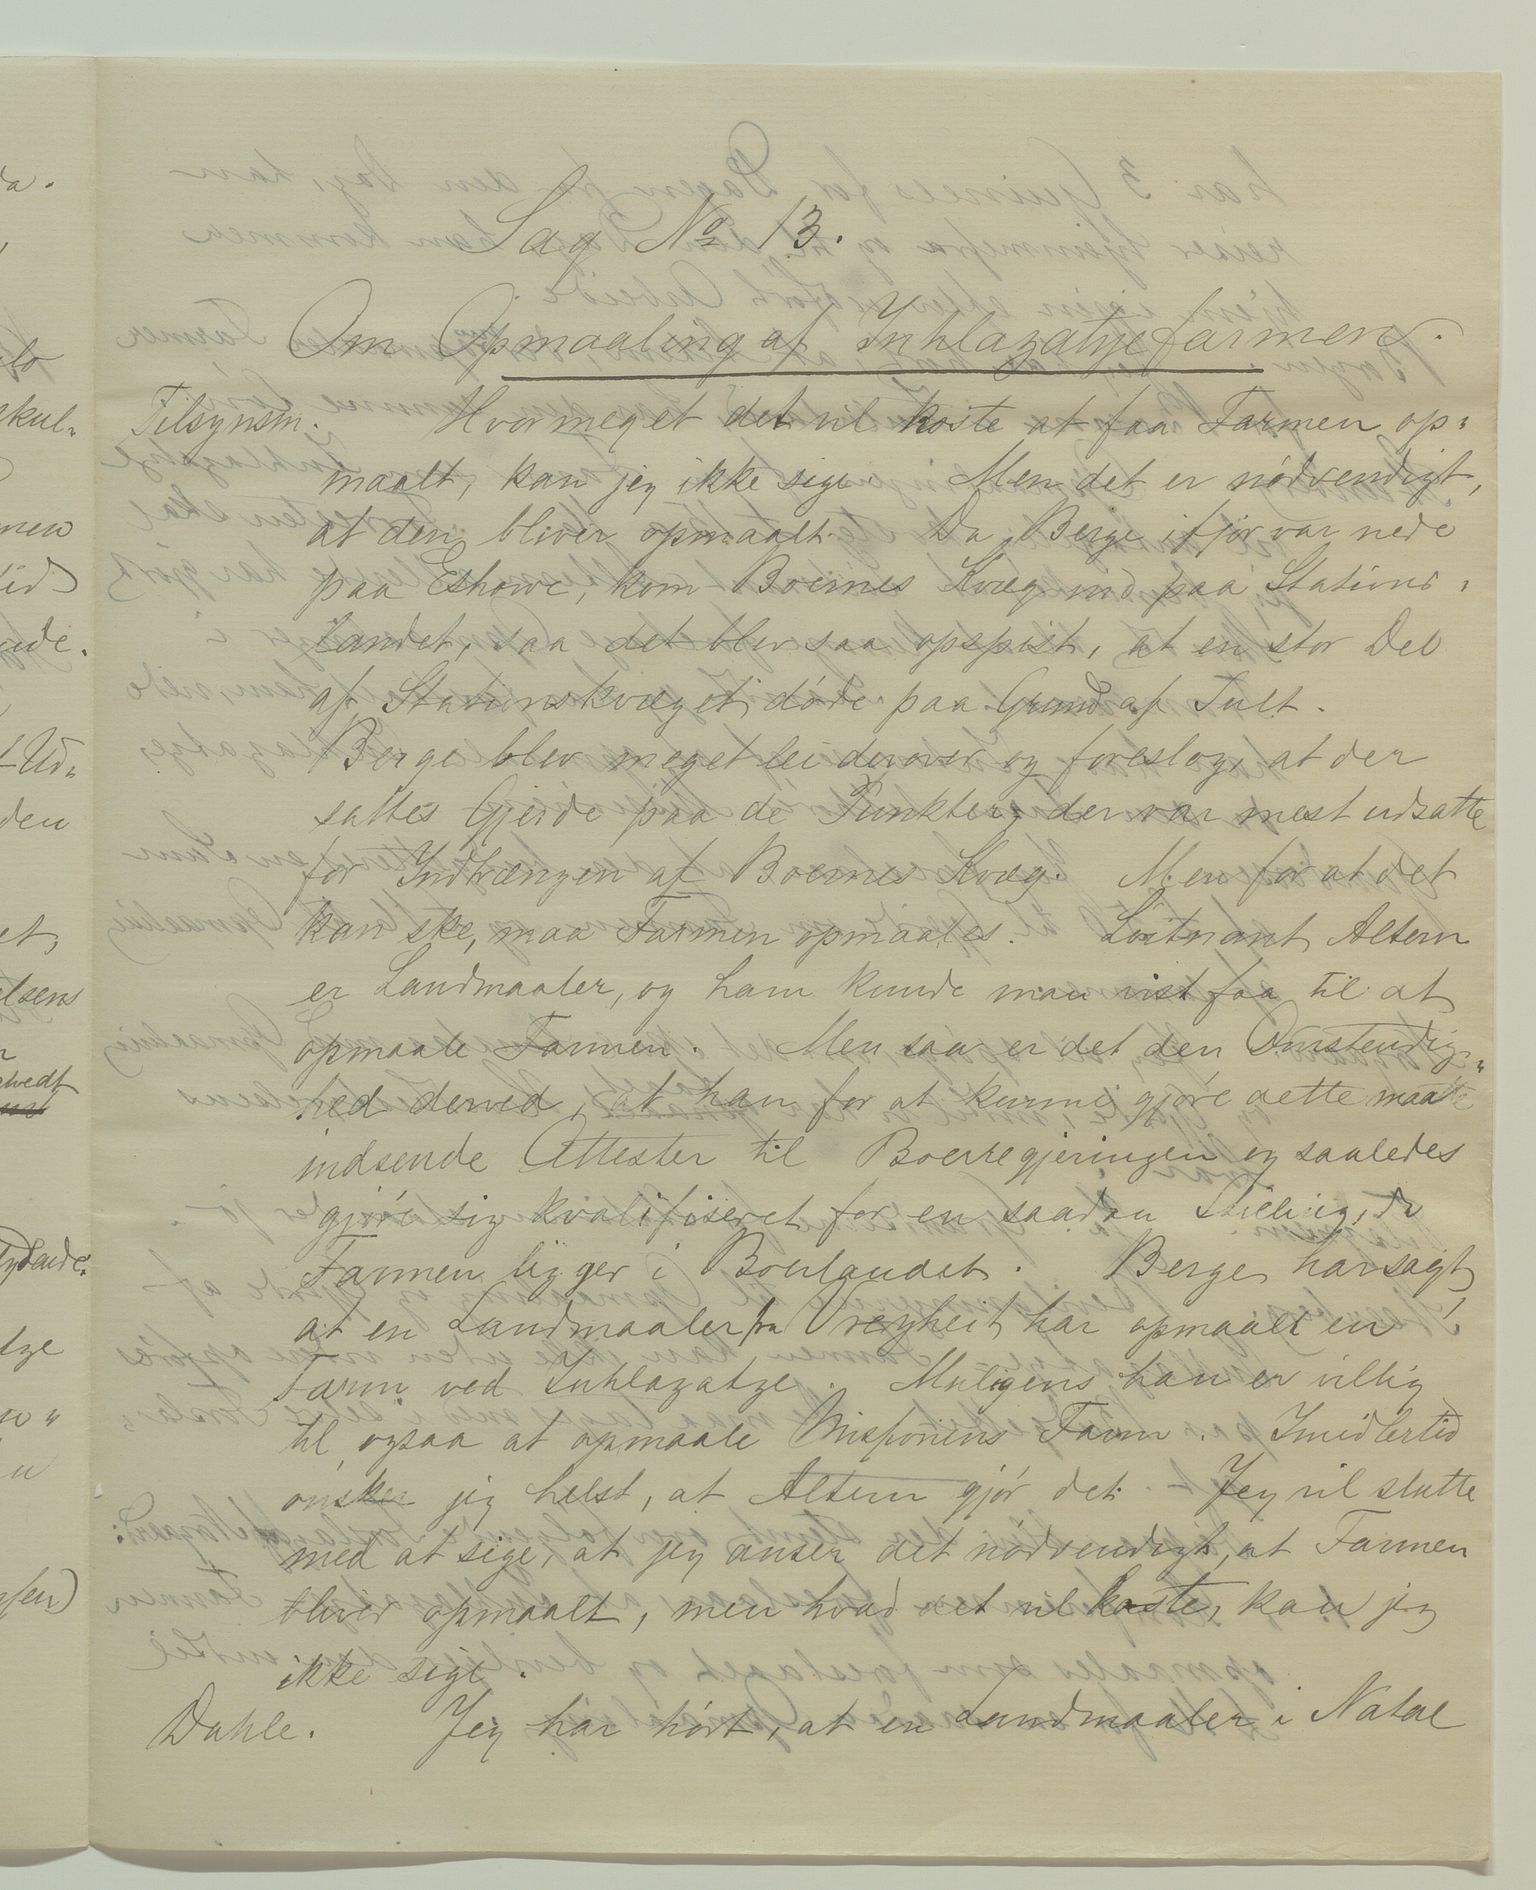 Sag No 13.
Om Opmaaling af Inhlazatyefarmen.
Tilsynsm. Hvormeget det vil koste at faa Farmen op=
maalt, kan jeg ikke sige. Men det er nödvendigt,
at den bliver opmaalt. Da Berge ifjor var nede
paa Eshowe, kom Boernes Kvæg ind paa Stations=
landet, saa det blev saa opspist, at en stor Del
af Stationskvæget döde paa Grund af Sult.
Berge blev meget lei derover og foreslog, at der
sattes Gjerde paa de Punkter, der var mest udsatte
for Indtrængen af Boernes Kvæg. Men for at det
kan ske, maa Farmen opmaales. Löitnant Altern
er Landmaaler, og ham kunde man vist faa til at
opmaale Farmen. Men saa er det den Omstendig=
hed derved, at han for at kunne gjöre dette maatte
indsende Attester til Boerregjeringen og saaledes
gjöre sig kvalifiseret for en saadan Stilling, da
Farmen ligger i Boerlandet. Berge har sagt,
at en Landmaaler fra Vreyheit har opmaalt en
Farm ved Inhlazatze. Muligens han er villig
til ogsaa at opmaale Missionens Farm. Imidlertid
önsker jeg helst, at Altern gjör det. Jeg vil slutte
med at sige, at jeg anser det nödvendigt, at Farmen
bliver opmaalt, men hvad det vil koste, kan jeg
ikke sige.
Dahle. Jeg har hört, at en Landmaaler i Natal